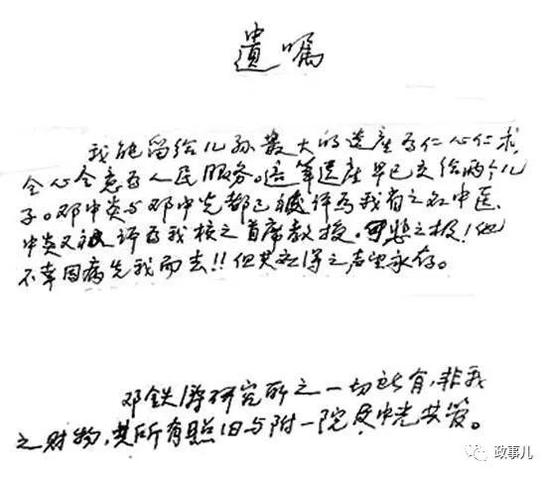 遺嘱
我能留给儿孙最大的遗产为仁心仁术,
全心全意为人民服务。这笔遗产早已交给两个儿
子。邓中炎与邓中光都已被评为我省之名中医、
中炎又被评为我校之首席教授。可悲之极！他
不幸因病先我而去!!但其医德之声望永存。
邓铁涛研究所之一切所有,非我
之财物,其所有照旧与附一院及中光共管。
政事儿